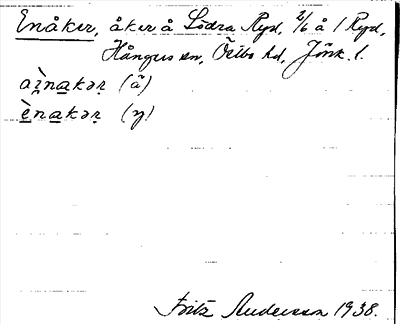 Enåker, åker å Södra Ryd, 2/6 å 1 Ryd,
Hångers sn, Östbo hd, Jönk. l.
aìnakər (ä)
ènakər (y)
Fritz Andersson 1938.